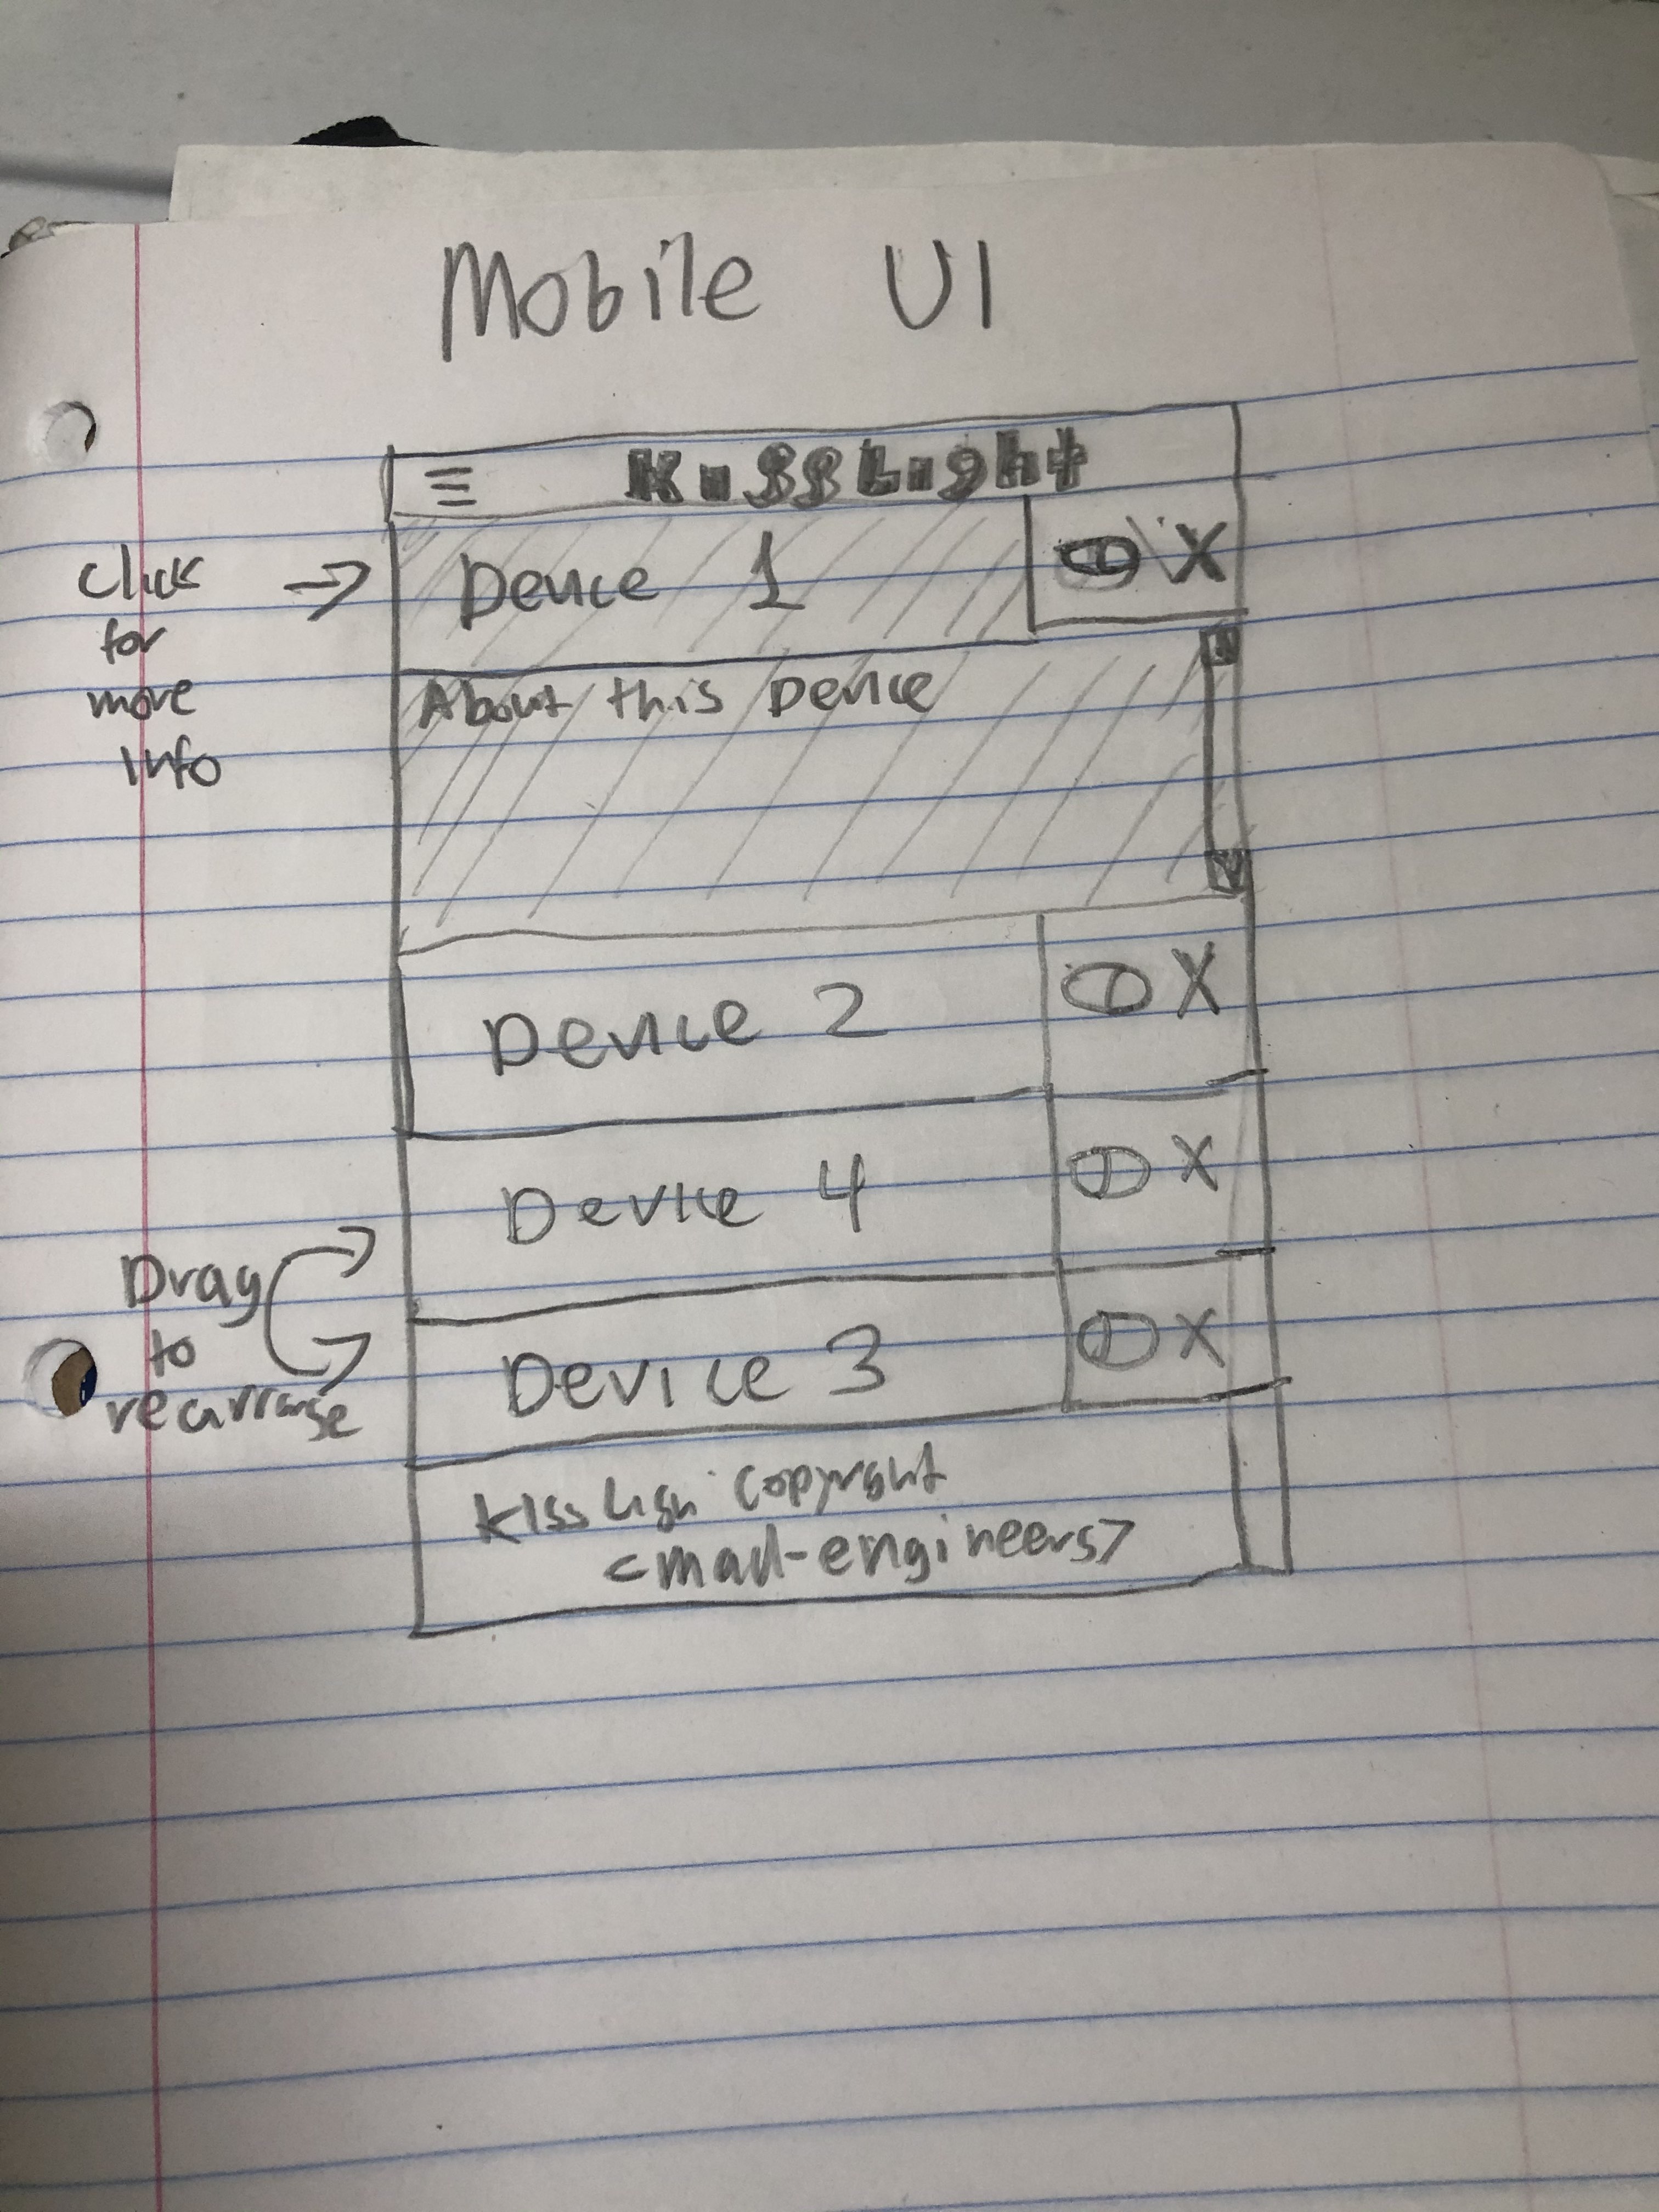 Mobile UI
KissLight
Device 1
X
Click
for
more
info
About this Device
Device 2
X
Device 4
X
Drag
to
rearrange
Device 3
X
KissLigh Copyright
<mad-engineers>